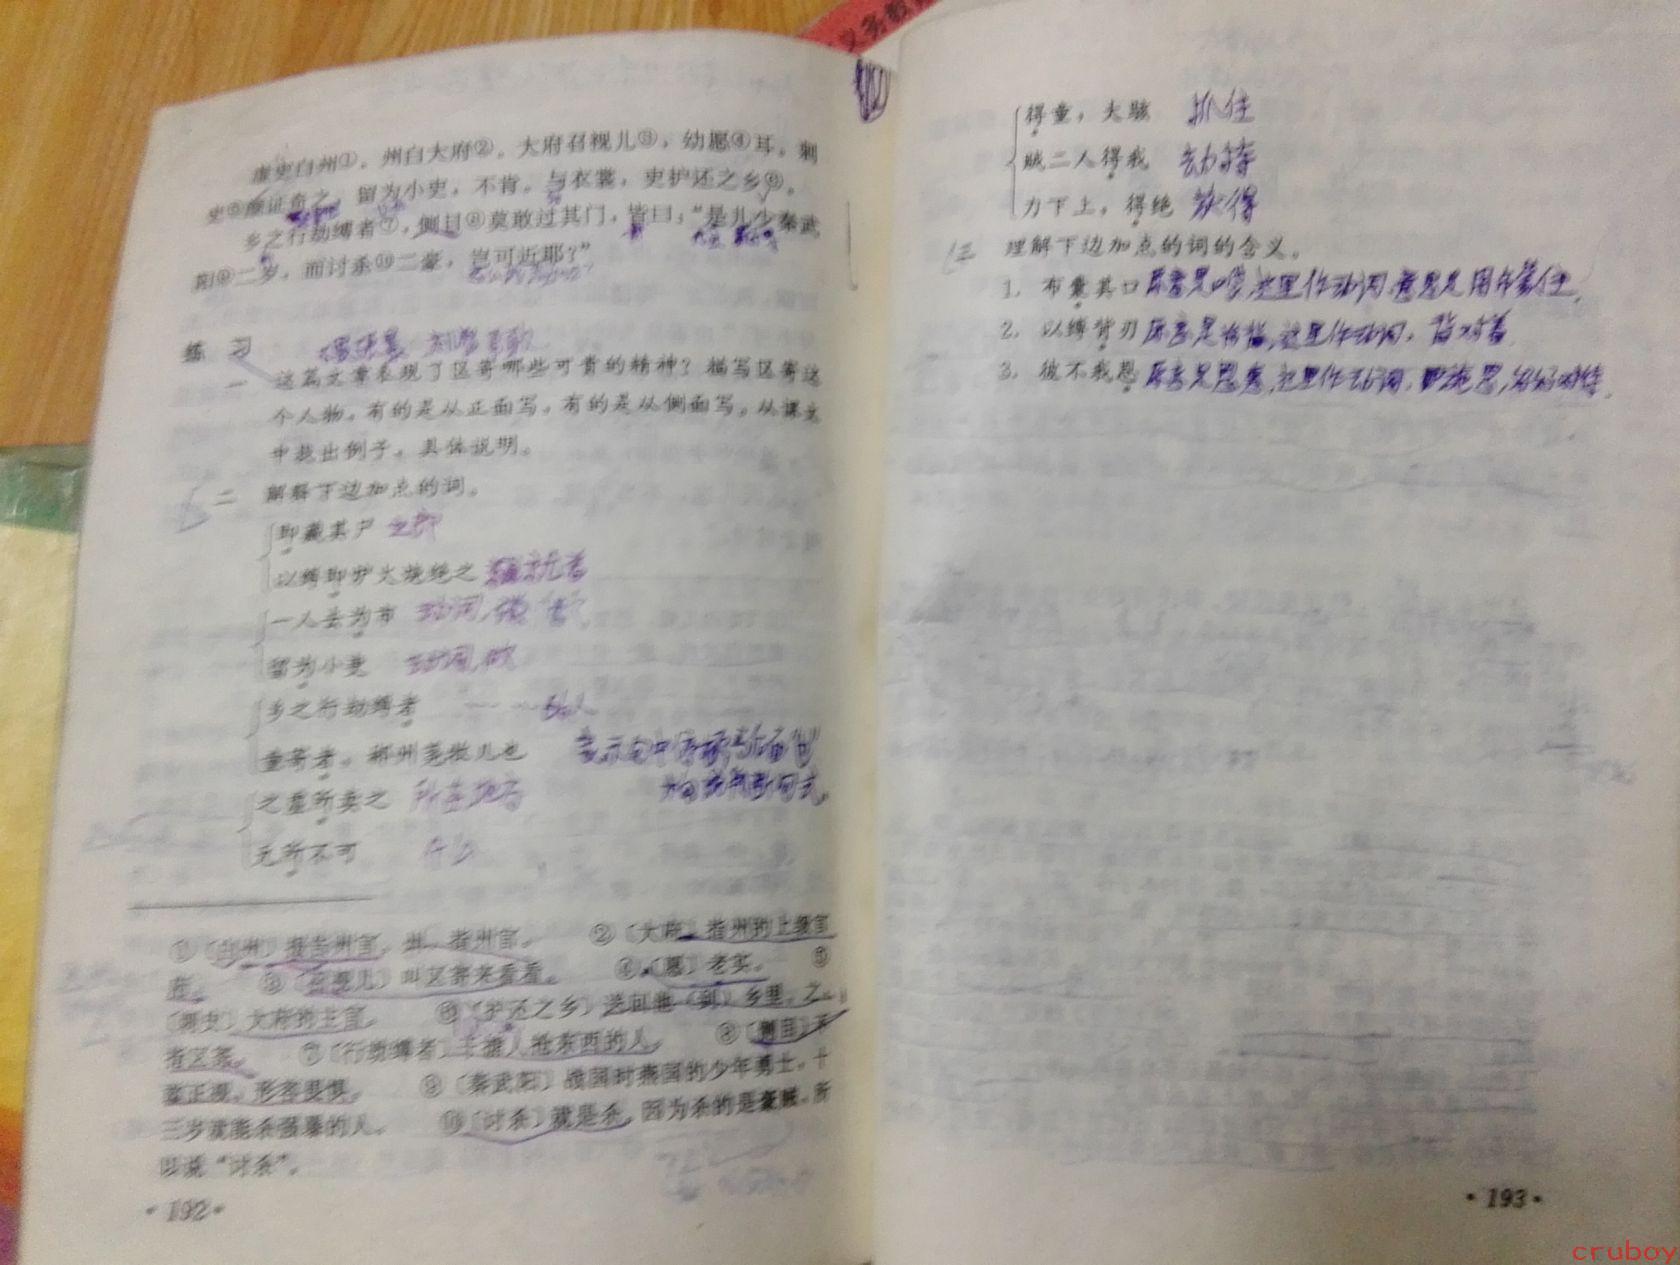 虚吏白州①，州白大府②。大府召视儿③，幼愿④耳。刺
史⑤颜证奇之，留为小吏，不肯。与衣裳，吏护还之乡⑥。
乡之行劫缚者⑦，侧目⑧莫敢过其门，皆曰：“是儿少秦武
阳⑨二岁，而讨杀⑩二豪，岂可近耶？”
练 习
一 这篇文章表现了区寄哪些可贵的精神？描写区寄这
个人物，有的是从正面写，有的是从侧面写。从课文
中找出例子，具体说明。
二 解释下边加点的词。
即藏其尸 立即
以缚即炉火烧绝之
一人去为市 动词，做
留为小吏 动词，做
乡之行劫缚者
童寄者，郴州荛牧儿也
之虚所卖之 所在地方
无所不可 什么
①〔白州〕报告州官。州，指州官。 ②〔大府〕指州的上级官
府。 ③〔召视儿〕叫区寄来看看。 ④〔愿〕老实。 ⑤
〔刺史〕大府的主官。 ⑥〔护还之乡〕送回他（到）乡里。之，
指区寄。 ⑦〔行劫缚者〕干掳人抢东西的人。 ⑧〔侧目〕不
敢正视，形容畏惧。 ⑨〔秦武阳〕战国时燕国的少年勇士，十
三岁就能杀强暴的人。 ⑩〔讨杀〕就是杀。因为杀的是豪贼，所
以说“讨杀”。
·192·
义务教育
得童，大骇 抓住
贼二人得我
力下上，得绝 获得
三 理解下边加点的词的含义。
1. 布囊其口 这里作动词，意思是用布蒙住。
2. 以缚背刃 这里作动词，背对着
3. 彼不我恩 原意是恩惠，这里作动词，施恩，好好对待。
·193·
cruboy